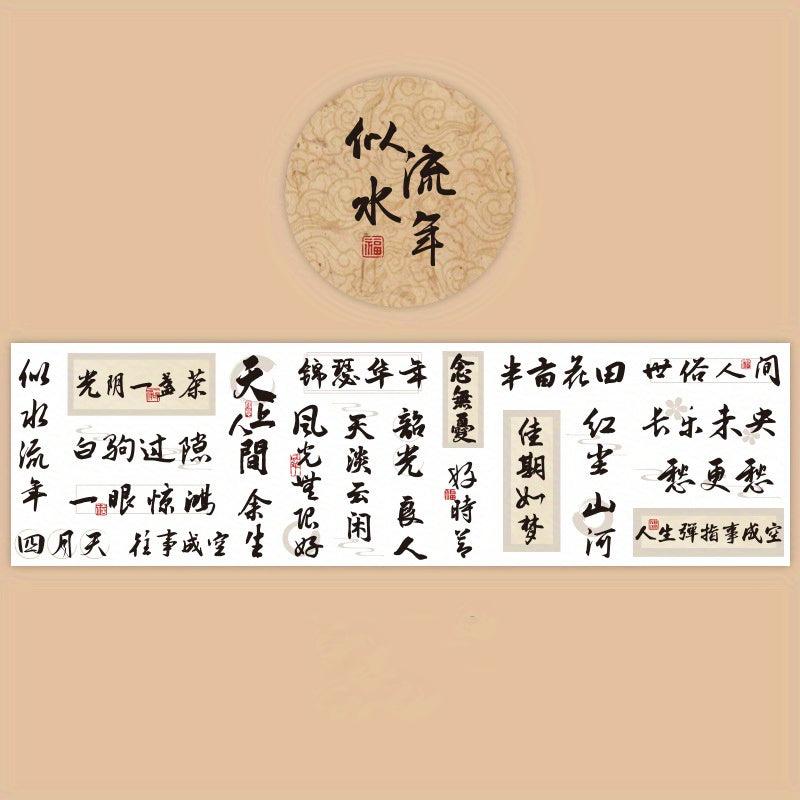 似水
流年
福
似水流年
光阴一盏茶
白驹过隙
一眼惊鸿
四月天
往事成空
天上人間
余生
锦瑟华年
风光無限好
天淡云闲
韶光
良人
念無憂
好時节
半亩花田
佳期如梦
红尘
山河
世俗人间
长乐未央
愁更愁
人生弹指事成空